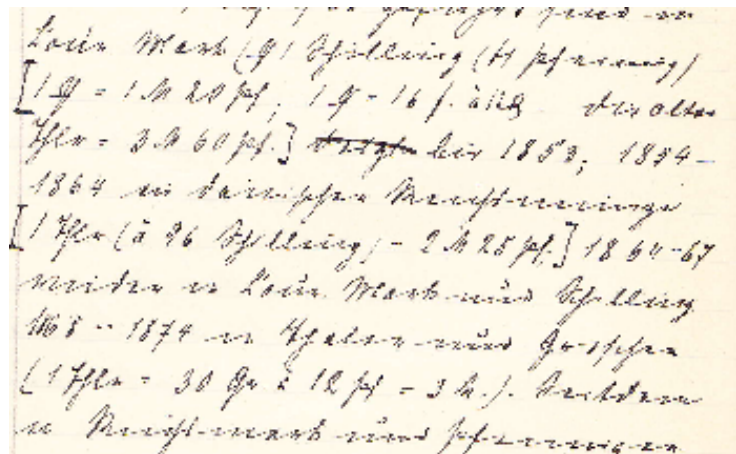 sind in
Cour. Mark (ꝟ) Schilling (H) Pfennig)
[1 ꝟ = 1 M 20 Pf, 1 ꝟ = 16 ß. à 12 der alte
Thlr = 3 M 60 Pf.] bis 1853; 1854-
1864 in dänischer Reichsmünze
[1 Thlr (à 96 Schilling) = 2 M 25 Pf.] 1864-67
wieder in Cour. Mark und Schilling
1868 - 1874 in Thaler und Groschen
(1 Thlr = 30 Gr à 12 Pf = 3 M.). Seitdem
in Reichsmark und Pfennigen